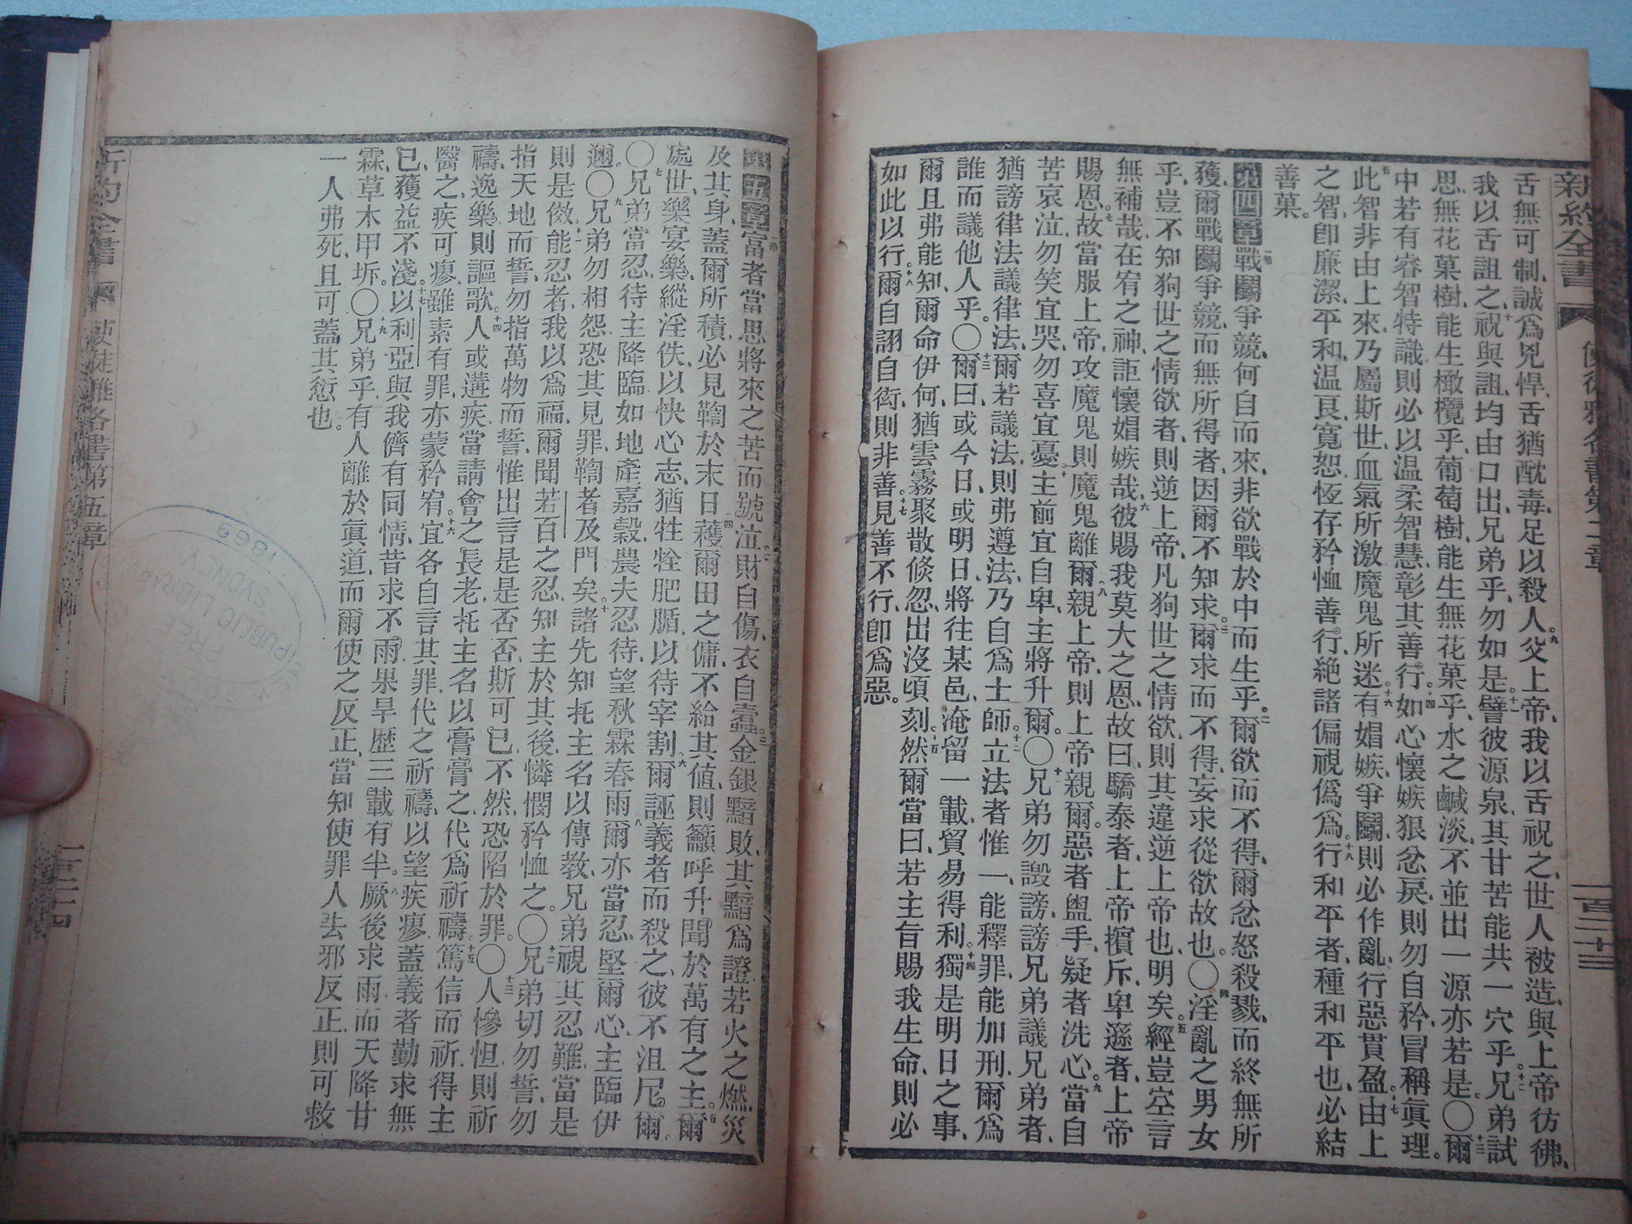 新約全書 使徒雅各書第 章 一百二十三
舌無可制、誠爲兇悍、舌猶酖毒、足以殺人。九父上帝、我以舌祝之、世人被造、與上帝彷彿、
我以舌詛之、十祝與詛、均由口出、兄弟乎、勿如是、十一譬彼源泉、其甘苦能共一穴乎。十二兄弟試
思、無花菓樹、能生橄欖乎、葡萄樹、能生無花菓乎、水之鹹淡、不並出一源、亦若是。〇十三爾
中若有睿智特識、則必以温柔智慧、彰其善行。十四如心懷嫉狠忿戾、則勿自矜、冒稱眞理。
十五此智非由上來、乃屬斯世、血氣所激、魔鬼所迷。十六有媢嫉爭鬬、則必作亂、行惡貫盈。十七由上
之智、卽廉潔、平和、温良、寬恕、恆存矜恤、善行、絶諸偏視僞爲。十八行和平者、種和平也、必結
善菓。
第四章戰鬬爭競、何自而來、非欲戰於中而生乎。二爾欲而不得、爾忿怒殺戮、而終無所
獲、爾戰鬬爭競、而無所得者、因爾不知求。三爾求而不得、妄求從欲故也。〇四淫亂之男女
乎、豈不知狥世之情欲者、則逆上帝、凡狥世之情欲、則其違逆上帝也明矣。五經豈空言
無補哉、在宥之神、詎懷媢嫉哉。六彼賜我莫大之恩、故曰、驕泰者、上帝擯斥、卑遜者、上帝
賜恩。七故當服上帝、攻魔鬼、則魔鬼離爾。八親上帝、則上帝親爾。惡者盥手、疑者洗心。九當自
苦哀泣、勿笑宜哭、勿喜宜憂。十主前宜自卑、主將升爾。〇十一兄弟勿譭謗、謗兄弟議兄弟者、
猶謗律法議律法、爾若議法、則弗遵法、乃自爲士師。十二立法者惟一、能釋罪、能加刑、爾爲
誰而議他人乎。〇十三爾曰、或今日、或明日、將往某邑、淹留一載、貿易得利。十四獨是明日之事、
爾且弗能知、爾命伊何、猶雲霧聚散倏忽、出沒頃刻。十五然爾當曰、若主旨賜我生命、則必
如此以行。十六爾自詡自衒、則非善。十七見善不行、卽爲惡。
第五章富者當思將來之苦、而號泣。二財自傷、衣自蠧。三金銀黯敗、其黯爲證、若火之燃、災
及其身、蓋爾所積、必見鞫於末日。四穫爾田之傭、不給其値、則籲呼升聞於萬有之主。五爾
處世、樂宴樂、縱淫佚、以快心志、猶牲牷肥腯、以待宰割。六爾誣義者而殺之、彼不沮尼爾。
〇七兄弟當忍、待主降臨、如地產嘉穀、農夫忍待、望秋霖春雨。八爾亦當忍、堅爾心、主臨伊
邇。〇九兄弟勿相怨、恐其見罪、鞫者及門矣。十諸先知托主名以傳教、兄弟視其忍難、當是
則是傚。十一能忍者、我以爲福、爾聞若百之忍、知主於其後、憐憫矜恤之。〇十二兄弟切勿誓、勿
指天地而誓、勿指萬物而誓、惟出言是是否否、斯可已、不然、恐陷於罪。〇十三人慘怛、則祈
禱、逸樂、則謳歌。十四人或遘疾、當請會之長老、托主名以膏膏之、代爲祈禱。十五篤信而祈、得主
醫之、疾可瘳、雖素有罪、亦蒙矜宥。十六宜各自言其罪、代之祈禱、以望疾瘳、蓋義者勤求無
已、獲益不淺。十七以利亞與我儕有同情、昔求不雨、果旱歷三載有半。十八厥後求雨、而天降甘
霖、草木甲坼。〇十九兄弟乎、有人離於眞道、而爾使之反正、當知使罪人去邪反正、則可救
一人弗死、且可蓋其愆也。
新約全書 使徒雅各書第五章 一百二十四
FREE PUBLIC LIBRARY
SYDNEY
1869